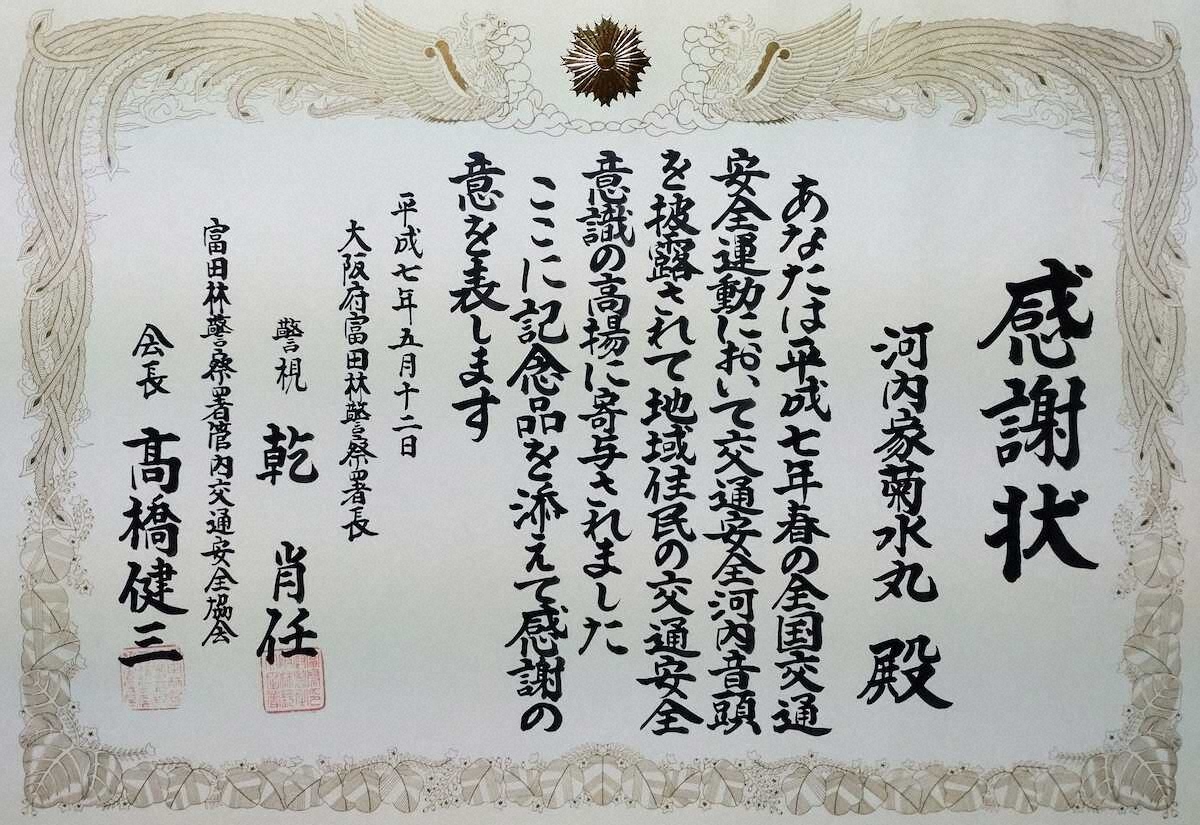 感謝状
河内家菊水丸 殿
あなたは平成七年春の全国交通
安全運動において交通安全河内音頭
を披露されて地域住民の交通安全
意識の高揚に寄与されました
ここに記念品を添えて感謝の
意を表します
平成七年五月十二日
大阪府富田林警察署長
警視 乾 肖任
富田林警察署管内交通安全協会
会長 髙橋健三